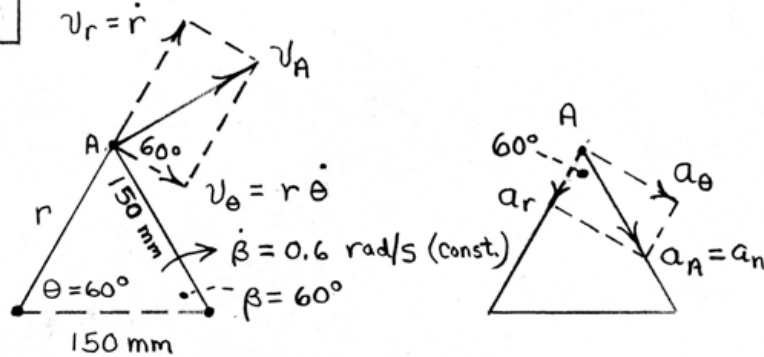 v_r = ṙ
v_A
A
60°
v_θ = r θ̇
r
150 mm
β̇ = 0.6 rad/s (const.)
θ = 60°
β = 60°
150 mm
A
60°
a_r
a_θ
a_A = a_n